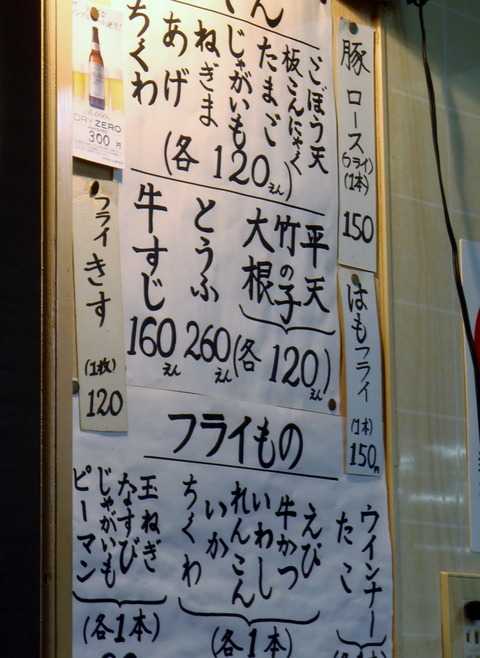 ごぼう天
板こんにゃく
たまご
じゃがいも
ねぎま
あげ
ちくわ
(各120えん)
平天
竹の子
大根
(各120えん)
とうふ
260えん
牛すじ
160えん
豚ロース
(フライ)
(1本)
150
はもフライ
(1本)
150円
DRY ZERO
300円
フライきす
(1枚)
120
フライもの
ウインナー
たこ
えび
牛かつ
いわし
れんこん
いか
ちくわ
(各1本)
玉ねぎ
なすび
じゃがいも
ピーマン
(各1本)